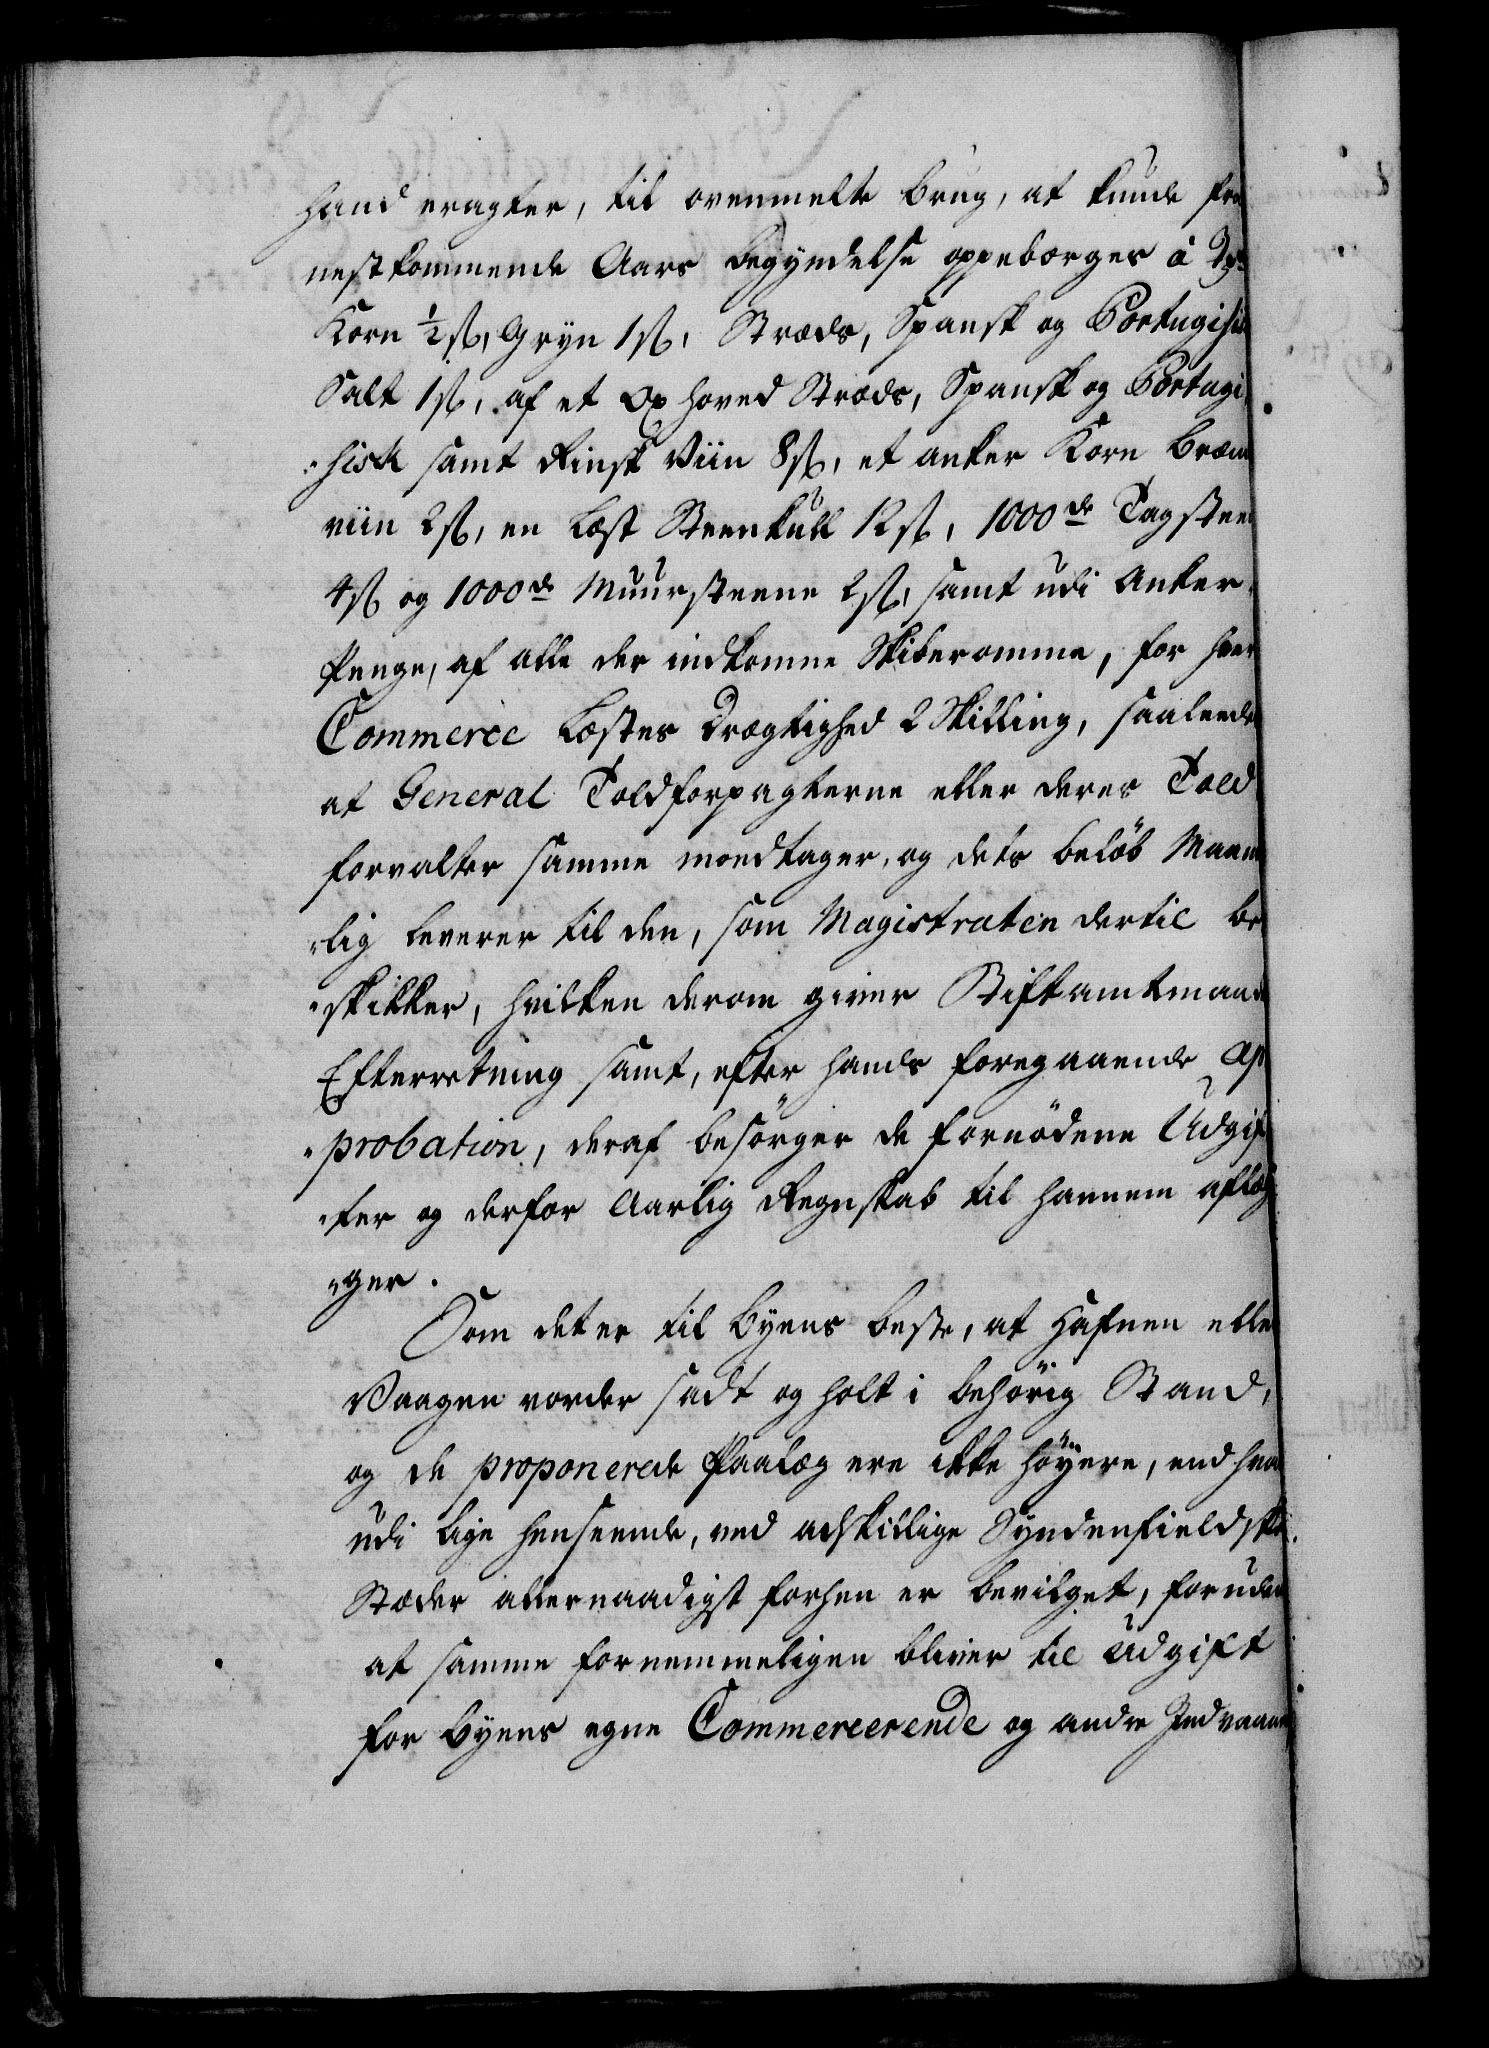 hand eragter, til ovenmelte brug, at kunde fra
nestkommende Aars begyndelse oppebørges â Tde
Korn ½ s, Gryn 1 s, Stræds, Spansk og Portugisis
Salt 1 s, af et Oxhoved Stræds, Spansk og Portugi
hisk samt Rinsk Viin 8 s, et anker Korn Bræn
viin 2 s, en Læst Steenkull 12 s, 1000de Tagsteen
4 s og 1000de Muursteene 2 s, samt udi Anker-
Penge, af alle der indkomne Skiberomme, for hver
Commerce Læstes Drægtighed 2 Skilling, saaleedes
at General Toldforpagterne eller deres Told
forvalter samme modtager, og dets beløb Maane
lig leverer til den, som Magistraten dertil be
skikker, hvilken derom giver Stiftamtmanden
Efterretning samt, efter hands foregaaende Ap
probation, deraf besørger de fornødene Udgif
ter og derfor Aarlig Regnskab til hannem aflæg
ger.
Som det er til Byens beste, at Hafnen eller
Vaagen vorder sadt og holt i behørig Stand,
og de proponerede Paalæg ere ikke høyere, end hva
udi lige henseende, ved adskillige Syndenfieldske
Stæder allernaadigst forhen er bevilget, foruden
at samme fornemmeligen bliver til Udgift
for Byens egne Commercerende og andre Indvaane